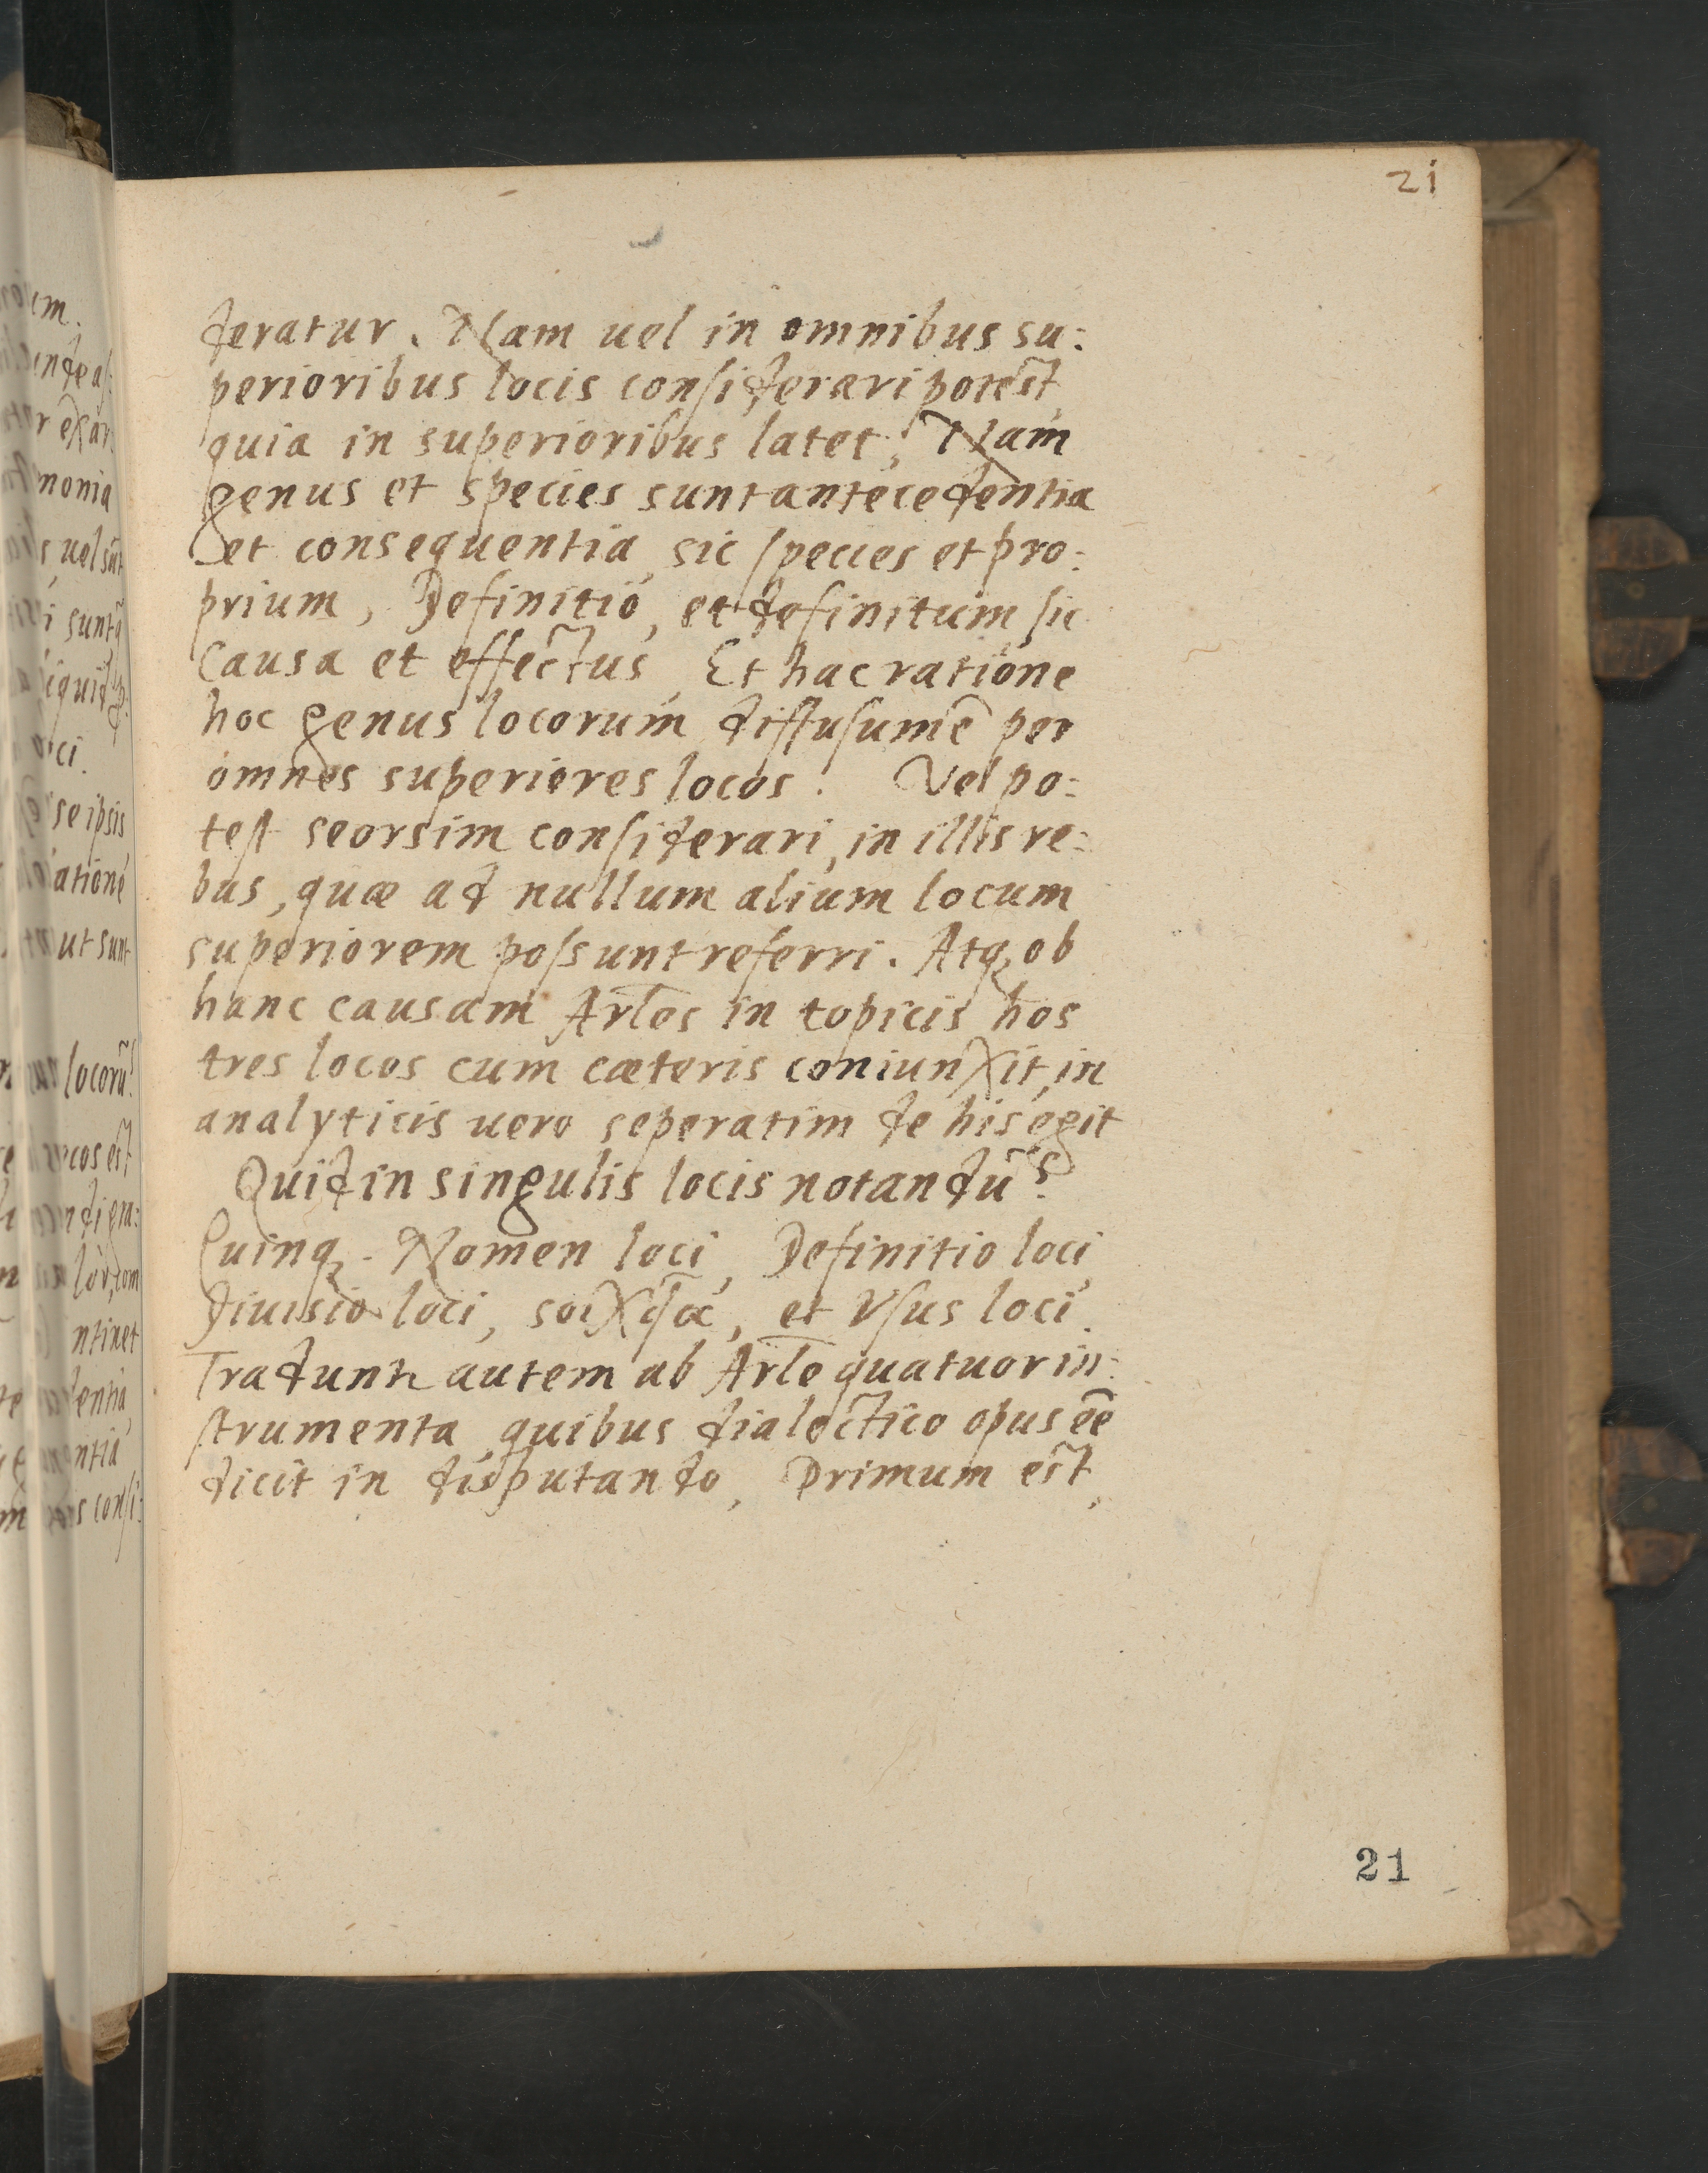 21
deratur. Nam uel in omnibus su:
perioribus locis considerari potest,
quia in superioribus latet. Nam
genus et species sunt antecedentia
et consequentia, sic species et pro:
prium, Definitio, et definitum, sic
Causa et effectus, Et hac ratione
hoc genus locorum diffusum ē per
omnes superiores locos. Vel po:
test seorsim considerari, in illis re:
bus, quæ ad nullum alium locum
superiorem possunt referri. Atq; ob
hanc causam Arles in topicis hos
tres locos cum cæteris coniunxit, in
analyticis uero seperatim de his egit
Quid in singulis locis notandū?
Quinq; . Nomen loci, Definitio loci,
diuisio loci, et Vsus loci.
Tradunt autem ab Arle quatuor in:
strumenta, quibus dialectico opus eē
dicit in disputando, Primum est,
21